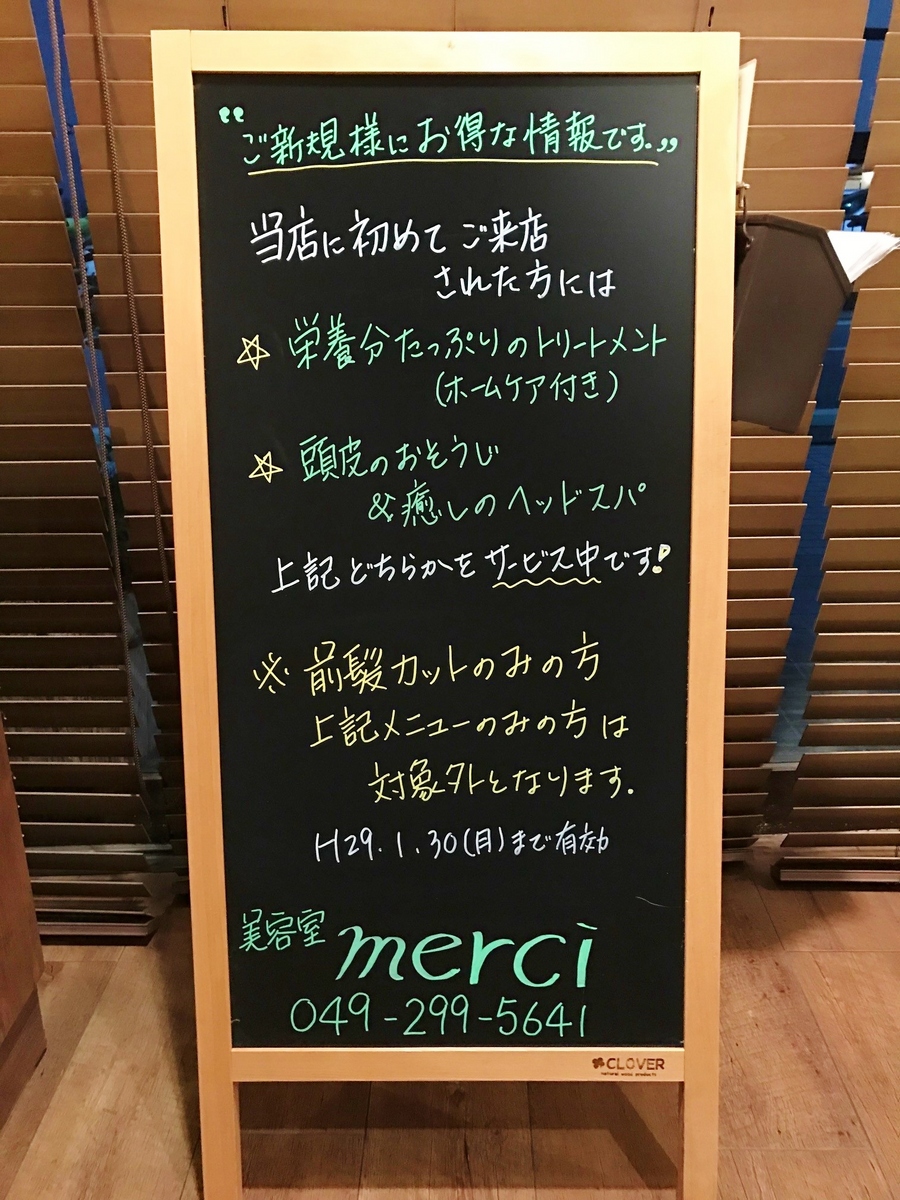 “ご新規様にお得な情報です.”
当店に初めてご来店
された方には
☆ 栄養分たっぷりのトリートメント
(ホームケア付き)
☆ 頭皮のおそうじ
&癒しのヘッドスパ
上記どちらかをサービス中です!
※ 前髪カットのみの方
上記メニューのみの方は
対象外となります.
H29.1.30(月)まで有効
美容室 merci
049-299-5641
CLOVER
natural wood products